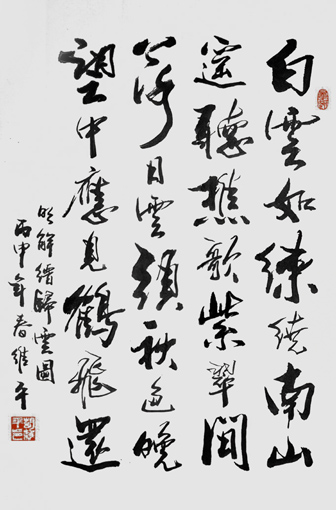 白雲如練繞南山
遥聽樵歌紫翠間
落日雲秋色晚
望中應見鶴飛還
明解縉歸雲圖
丙申年春維平